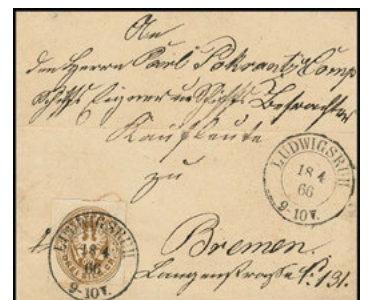 An
den Herrn Carl Pokrantz Comp
Schiffs Eigner und Schiffs Befrachter
Kaufleute
zu
Bremen.
Langenstraße N. 131.
LUDWIGSRUH
18 4
66
9-10 V.
LUDWIGSRUH
18 4
66
9-10 V.